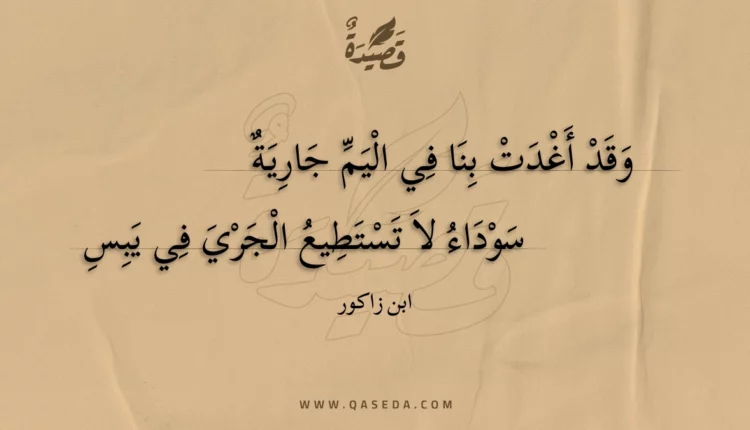 قَصِيدَةٌ
وَقَدْ أَغْدَتْ بِنَا فِي الْيَمِّ جَارِيَةٌ
سَوْدَاءُ لاَ تَسْتَطِيعُ الْجَرْيَ فِي يَبِسِ
ابن زاكور
WWW.QASEDA.COM